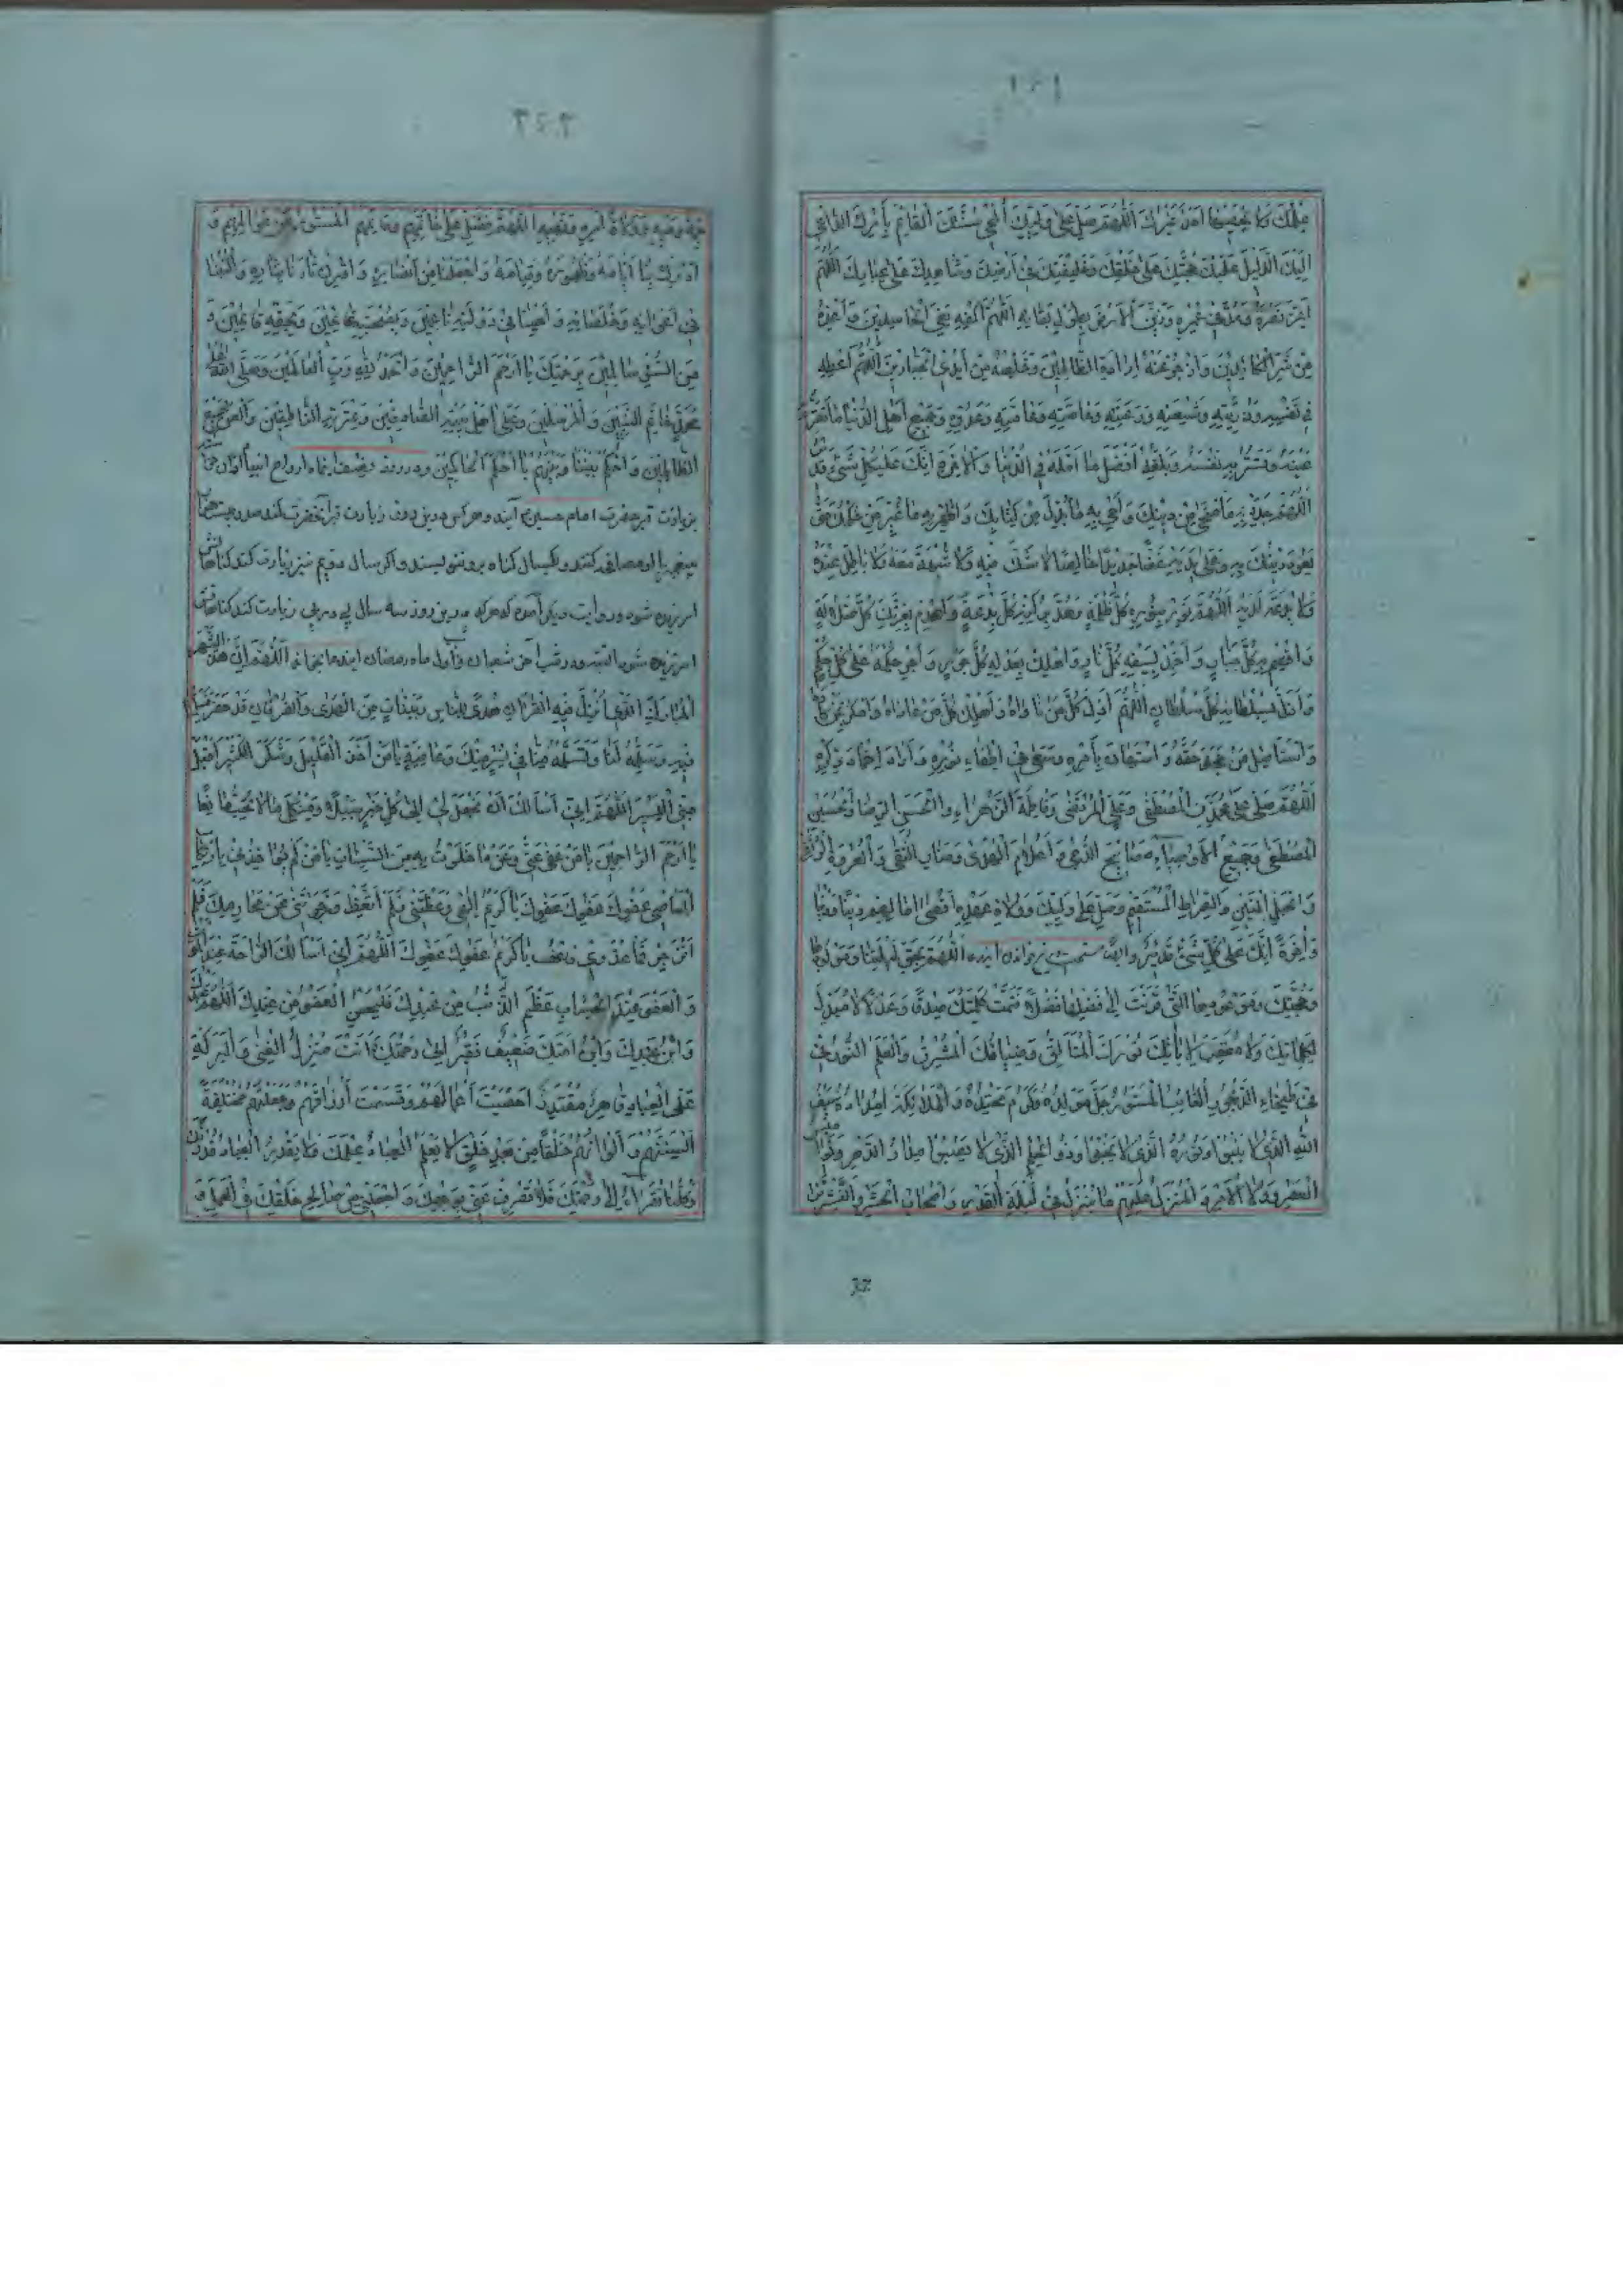 عِلْمُكَ وَلَا يُحْصِيهَا أَحَدٌ غَيْرُكَ اَللّٰهُمَّ صَلِّ عَلَىٰ وَلِيِّكَ الْمُحْيِي سُنَّتَكَ الْقَائِمِ بِأَمْرِكَ الدَّاعِي
اِلَيْكَ الدَّلِيلِ عَلَيْكَ حُجَّتِكَ عَلَىٰ خَلْقِكَ وَخَلِيفَتِكَ فِي أَرْضِكَ وَشَاهِدِكَ عَلَىٰ عِبَادِكَ اَللّٰهُمَّ
أَعِزَّ نَصْرَهُ وَمُدَّ فِي عُمْرِهِ وَزَيِّنِ الْأَرْضَ بِطُولِ بَقَائِهِ اَللّٰهُمَّ اكْفِهِ بَغْيَ الْحَاسِدِينَ وَأَعِذْهُ
مِنْ شَرِّ الْكَائِدِينَ وَازْجُرْ عَنْهُ إِرَادَةَ الظَّالِمِينَ وَخَلِّصْهُ مِنْ أَيْدِي الْجَبَّارِينَ اَللّٰهُمَّ أَعْطِهِ
فِي نَفْسِهِ وَذُرِّيَّتِهِ وَشِيعَتِهِ وَرَعِيَّتِهِ وَخَاصَّتِهِ وَعَامَّتِهِ وَعَدُوِّهِ وَجَمِيعِ أَهْلِ الدُّنْيَا مَا تُقِرُّ بِهِ
عَيْنَهُ وَتَسُرُّ بِهِ نَفْسَهُ وَبَلِّغْهُ أَفْضَلَ مَا أَمَّلَهُ فِي الدُّنْيَا وَالْآخِرَةِ إِنَّكَ عَلَىٰ كُلِّ شَيْءٍ قَدِيرٌ
اَللّٰهُمَّ جَدِّدْ بِهِ مَا امْتَحَىٰ مِنْ دِينِكَ وَأَحْيِ بِهِ مَا بُدِّلَ مِنْ كِتَابِكَ وَأَظْهِرْ بِهِ مَا غُيِّرَ مِنْ حُكْمِكَ حَتَّىٰ
يَعُودَ دِينُكَ بِهِ وَعَلَىٰ يَدَيْهِ غَضًّا جَدِيدًا خَالِصًا لَا شَكَّ فِيهِ وَلَا شُبْهَةَ مَعَهُ وَلَا بَاطِلَ عِنْدَهُ
وَلَا بِدْعَةَ لَدَيْهِ اَللّٰهُمَّ نَوِّرْ بِنُورِهِ كُلَّ ظُلْمَةٍ وَهُدَّ بِرُكْنِهِ كُلَّ بِدْعَةٍ وَاهْدِمْ بِعِزَّتِهِ كُلَّ ضَلَالَةٍ
وَاقْصِمْ بِهِ كُلَّ جَبَّارٍ وَأَخْمِدْ بِسَيْفِهِ كُلَّ نَارٍ وَأَهْلِكْ بِعَدْلِهِ كُلَّ جَوْرٍ وَأَجْرِ حُكْمَهُ عَلَىٰ كُلِّ حُكْمٍ
وَأَذِلَّ بِسُلْطَانِهِ كُلَّ سُلْطَانٍ اَللّٰهُمَّ أَذِلَّ كُلَّ مَنْ نَاوَاهُ وَأَهْلِكْ كُلَّ مَنْ عَادَاهُ وَامْكُرْ بِمَنْ كَادَهُ
وَاسْتَأْصِلْ مَنْ جَحَدَ حَقَّهُ وَاسْتَهَانَ بِأَمْرِهِ وَسَعَىٰ فِي إِطْفَاءِ نُورِهِ وَأَرَادَ إِخْمَادَ ذِكْرِهِ
اَللّٰهُمَّ صَلِّ عَلَىٰ مُحَمَّدٍ الْمُصْطَفَىٰ وَعَلِيٍّ الْمُرْتَضَىٰ وَفَاطِمَةَ الزَّهْرَاءِ وَالْحَسَنِ الرِّضَا وَالْحُسَيْنِ
الْمُصَفَّىٰ وَجَمِيعِ الْأَوْصِيَاءِ مَصَابِيحِ الدُّجَىٰ وَأَعْلَامِ الْهُدَىٰ وَمَنَارِ التُّقَىٰ وَالْعُرْوَةِ الْوُثْقَىٰ
وَالْحَبْلِ الْمَتِينِ وَالصِّرَاطِ الْمُسْتَقِيمِ وَصَلِّ عَلَىٰ وَلِيِّكَ وَوُلَاةِ عَهْدِهِ
وَآخِرَةً إِنَّكَ عَلَىٰ كُلِّ شَيْءٍ قَدِيرٌ اَللّٰهُمَّ بِحَقِّ لَيْلَتِنَا وَمَوْلُودِهَا
وَحُجَّتِكَ وَمَوْعُودِهَا الَّتِي قَرَنْتَ إِلَىٰ فَضْلِهَا فَضْلًا فَتَمَّتْ كَلِمَتُكَ صِدْقًا وَعَدْلًا لَا مُبَدِّلَ
لِكَلِمَاتِكَ وَلَا مُعَقِّبَ لِآيَاتِكَ نُورُكَ الْمُتَأَلِّقُ وَضِيَاؤُكَ الْمُشْرِقُ وَالْعَلَمُ النُّورُ فِي
طَخْيَاءِ الدَّيْجُورِ الْغَائِبُ الْمَسْتُورُ جَلَّ مَوْلِدُهُ وَكَرُمَ مَحْتِدُهُ وَالْمَلَائِكَةُ شُهَّدُهُ سَيْفُ
اللّٰهِ الَّذِي لَا يَنْبُو وَنُورُهُ الَّذِي لَا يَخْبُو وَذُو الْحِلْمِ الَّذِي لَا يَصْبُو مَدَارُ الدَّهْرِ وَنَوَامِيسُ
الْعَصْرِ وَوُلَاةُ الْأَمْرِ وَالْمُنَزَّلُ عَلَيْهِمْ مَا يَنْزِلُ فِي لَيْلَةِ الْقَدْرِ وَأَصْحَابُ الْحَشْرِ وَالنَّشْرِ
وَلَاةُ أَمْرِهِ وَنَهْيِهِ اَللّٰهُمَّ فَصَلِّ عَلَىٰ خَاتِمِهِمْ وَقَائِمِهِمُ الْمَسْتُورِ عَنْ عَوَالِمِهِمْ وَ
أَدْرِكْ بِنَا أَيَّامَهُ وَظُهُورَهُ وَقِيَامَهُ وَاجْعَلْنَا مِنْ أَنْصَارِهِ وَاقْرِنْ ثَارَنَا بِثَارِهِ وَاكْتُبْنَا
فِي أَعْوَانِهِ وَخُلَصَائِهِ وَأَحْيِنَا فِي دَوْلَتِهِ نَاعِمِينَ وَبِصُحْبَتِهِ غَانِمِينَ وَبِحَقِّهِ قَائِمِينَ وَ
مِنَ السُّوءِ سَالِمِينَ بِرَحْمَتِكَ يَا أَرْحَمَ الرَّاحِمِينَ وَالْحَمْدُ لِلّٰهِ رَبِّ الْعَالَمِينَ وَصَلَّى اللّٰهُ عَلَىٰ
مُحَمَّدٍ خَاتَمِ النَّبِيِّينَ وَالْمُرْسَلِينَ وَعَلَىٰ أَهْلِ بَيْتِهِ الصَّادِقِينَ وَعِتْرَتِهِ النَّاطِقِينَ وَالْعَنْ جَمِيعَ
الظَّالِمِينَ وَاحْكُمْ بَيْنَنَا وَبَيْنَهُمْ يَا أَحْكَمَ الْحَاكِمِينَ
بزیارت قبر حضرت امام حسین آیند وهرکس درین روز زیارت قبر آنحضرت کند
پیغمبر با او مصافحه کنند ویکسال گناه برو ننویسند واگر سال دویم نیز زیارت کند گناهانش
امرزیده شود ودر روایت دیگر آمده که هرکه درین روز سه سال پی در پی زیارت کند گناهانش
امرزیده شود البته ودر شب آخر شعبان وشب أول ماه رمضان ایندعا بخواند اَللّٰهُمَّ إِنَّ هٰذَا الشَّهْرَ
الْمُبَارَكَ الَّذِي أُنْزِلَ فِيهِ الْقُرْآنُ هُدًى لِلنَّاسِ وَبَيِّنَاتٍ مِنَ الْهُدَىٰ وَالْفُرْقَانِ قَدْ حَضَرَ فَسَلِّمْنَا
فِيهِ وَسَلِّمْهُ لَنَا وَتَسَلَّمْهُ مِنَّا فِي يُسْرٍ مِنْكَ وَعَافِيَةٍ يَا مَنْ أَخَذَ الْقَلِيلَ وَشَكَرَ الْكَثِيرَ اقْبَلْ
مِنِّي الْيَسِيرَ اَللّٰهُمَّ إِنِّي أَسْأَلُكَ أَنْ تَجْعَلَ لِي إِلَىٰ كُلِّ خَيْرٍ سَبِيلًا وَمِنْ كُلِّ مَا لَا تُحِبُّ مَانِعًا
يَا أَرْحَمَ الرَّاحِمِينَ يَا مَنْ عَفَىٰ عَنِّي وَعَنْ مَا خَلَوْتُ بِهِ مِنَ السَّيِّئَاتِ يَا مَنْ لَمْ يُؤَاخِذْنِي بِارْتِكَابِ
الْمَعَاصِي عَفْوَكَ عَفْوَكَ عَفْوَكَ يَا كَرِيمُ إِلٰهِي وَعَظْتَنِي فَلَمْ أَتَّعِظْ وَزَجَرْتَنِي عَنْ مَحَارِمِكَ فَلَمْ
أَنْزَجِرْ فَمَا عُذْرِي فَاعْفُ يَا كَرِيمُ عَفْوَكَ عَفْوَكَ اَللّٰهُمَّ إِنِّي أَسْأَلُكَ الرَّاحَةَ عِنْدَ الْمَوْتِ
وَالْعَفْوَ عِنْدَ الْحِسَابِ عَظُمَ الذَّنْبُ مِنْ عَبْدِكَ فَلْيَحْسُنِ الْعَفْوُ مِنْ عِنْدِكَ اَللّٰهُمَّ إِنِّي عَبْدُكَ
وَابْنُ عَبْدِكَ وَابْنُ أَمَتِكَ ضَعِيفٌ فَقِيرٌ إِلَىٰ رَحْمَتِكَ وَأَنْتَ مُنْزِلُ الْغِنَىٰ وَالْبَرَكَةِ
عَلَى الْعِبَادِ قَاهِرٌ مُقْتَدِرٌ أَحْصَيْتَ أَعْمَالَهُمْ وَقَسَمْتَ أَرْزَاقَهُمْ وَجَعَلْتَهُمْ مُخْتَلِفَةً
أَلْسِنَتُهُمْ وَأَلْوَانُهُمْ خَلْقًا مِنْ بَعْدِ خَلْقٍ لَا يَعْلَمُ الْعِبَادُ عِلْمَكَ وَلَا يَقْدِرُ الْعِبَادُ قَدْرَكَ
وَكُلُّنَا فُقَرَاءُ إِلَىٰ رَحْمَتِكَ فَلَا تَصْرِفْ عَنِّي وَجْهَكَ وَاجْعَلْنِي مِنْ صَالِحِ خَلْقِكَ فِي الْعَمَلِ وَ